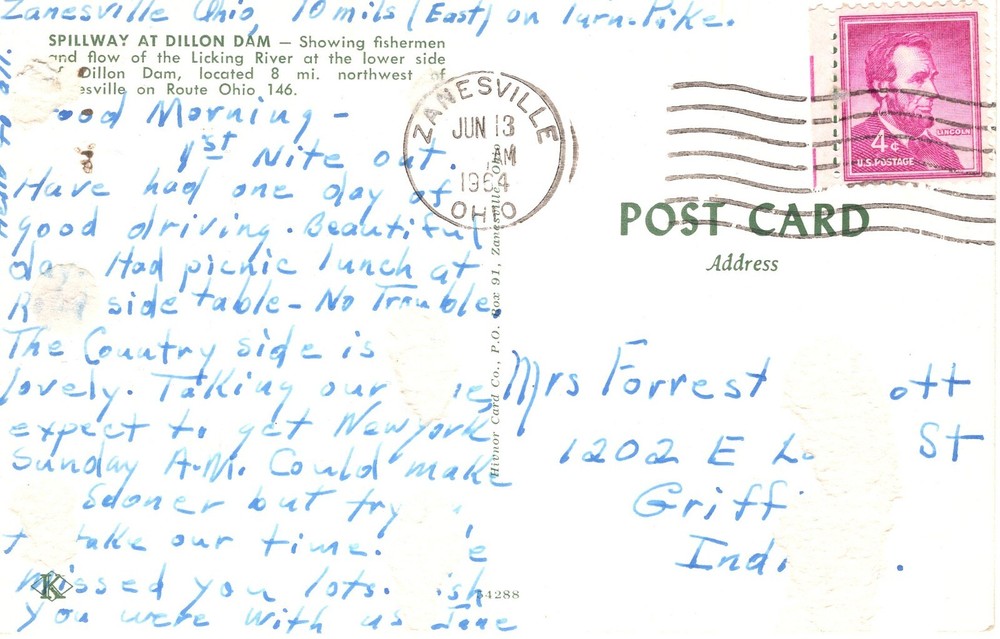 Zanesville Ohio, 10 mils (East) on Turn-Pike.
SPILLWAY AT DILLON DAM — Showing fishermen
and flow of the Licking River at the lower side
of Dillon Dam, located 8 mi. northwest of
esville on Route Ohio 146.
ood Morning -
1st Nite out.
Have had one day of
good driving. Beautiful
day. Had picnic lunch at
Road side table - No Trouble.
The Country side is
lovely. Taking our
expect to get New york
Sunday A.M. Could make
Sooner but try
take our time.
missed you lots. ish
You were with us Jane
K
54288
Hivnor Card Co., P.O. Box 91, Zanesville, Ohio
ZANESVILLE
JUN 13
AM
1964
OHIO
LINCOLN
4¢
U.S. POSTAGE
POST CARD
Address
Mrs Forrest ott
1202 E St
Griff
Ind.